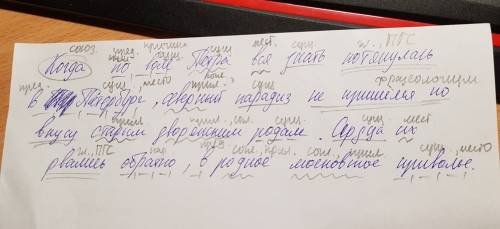 союз. пред. сущ. сущ. мест. сущ. гл., ПГС
Когда по воле Петра вся знать потянулась
пред. сущ. место прил. сущ. фразеологизм
в Петербург, северный парадиз не пришёлся по
прил. прил. сущ. сущ. мест
вкусу старым дворянским родам. Сердца их
гл., ПГС нар. пред. прил. прил. сущ., место
рвались обратно, в родное московское приволье.